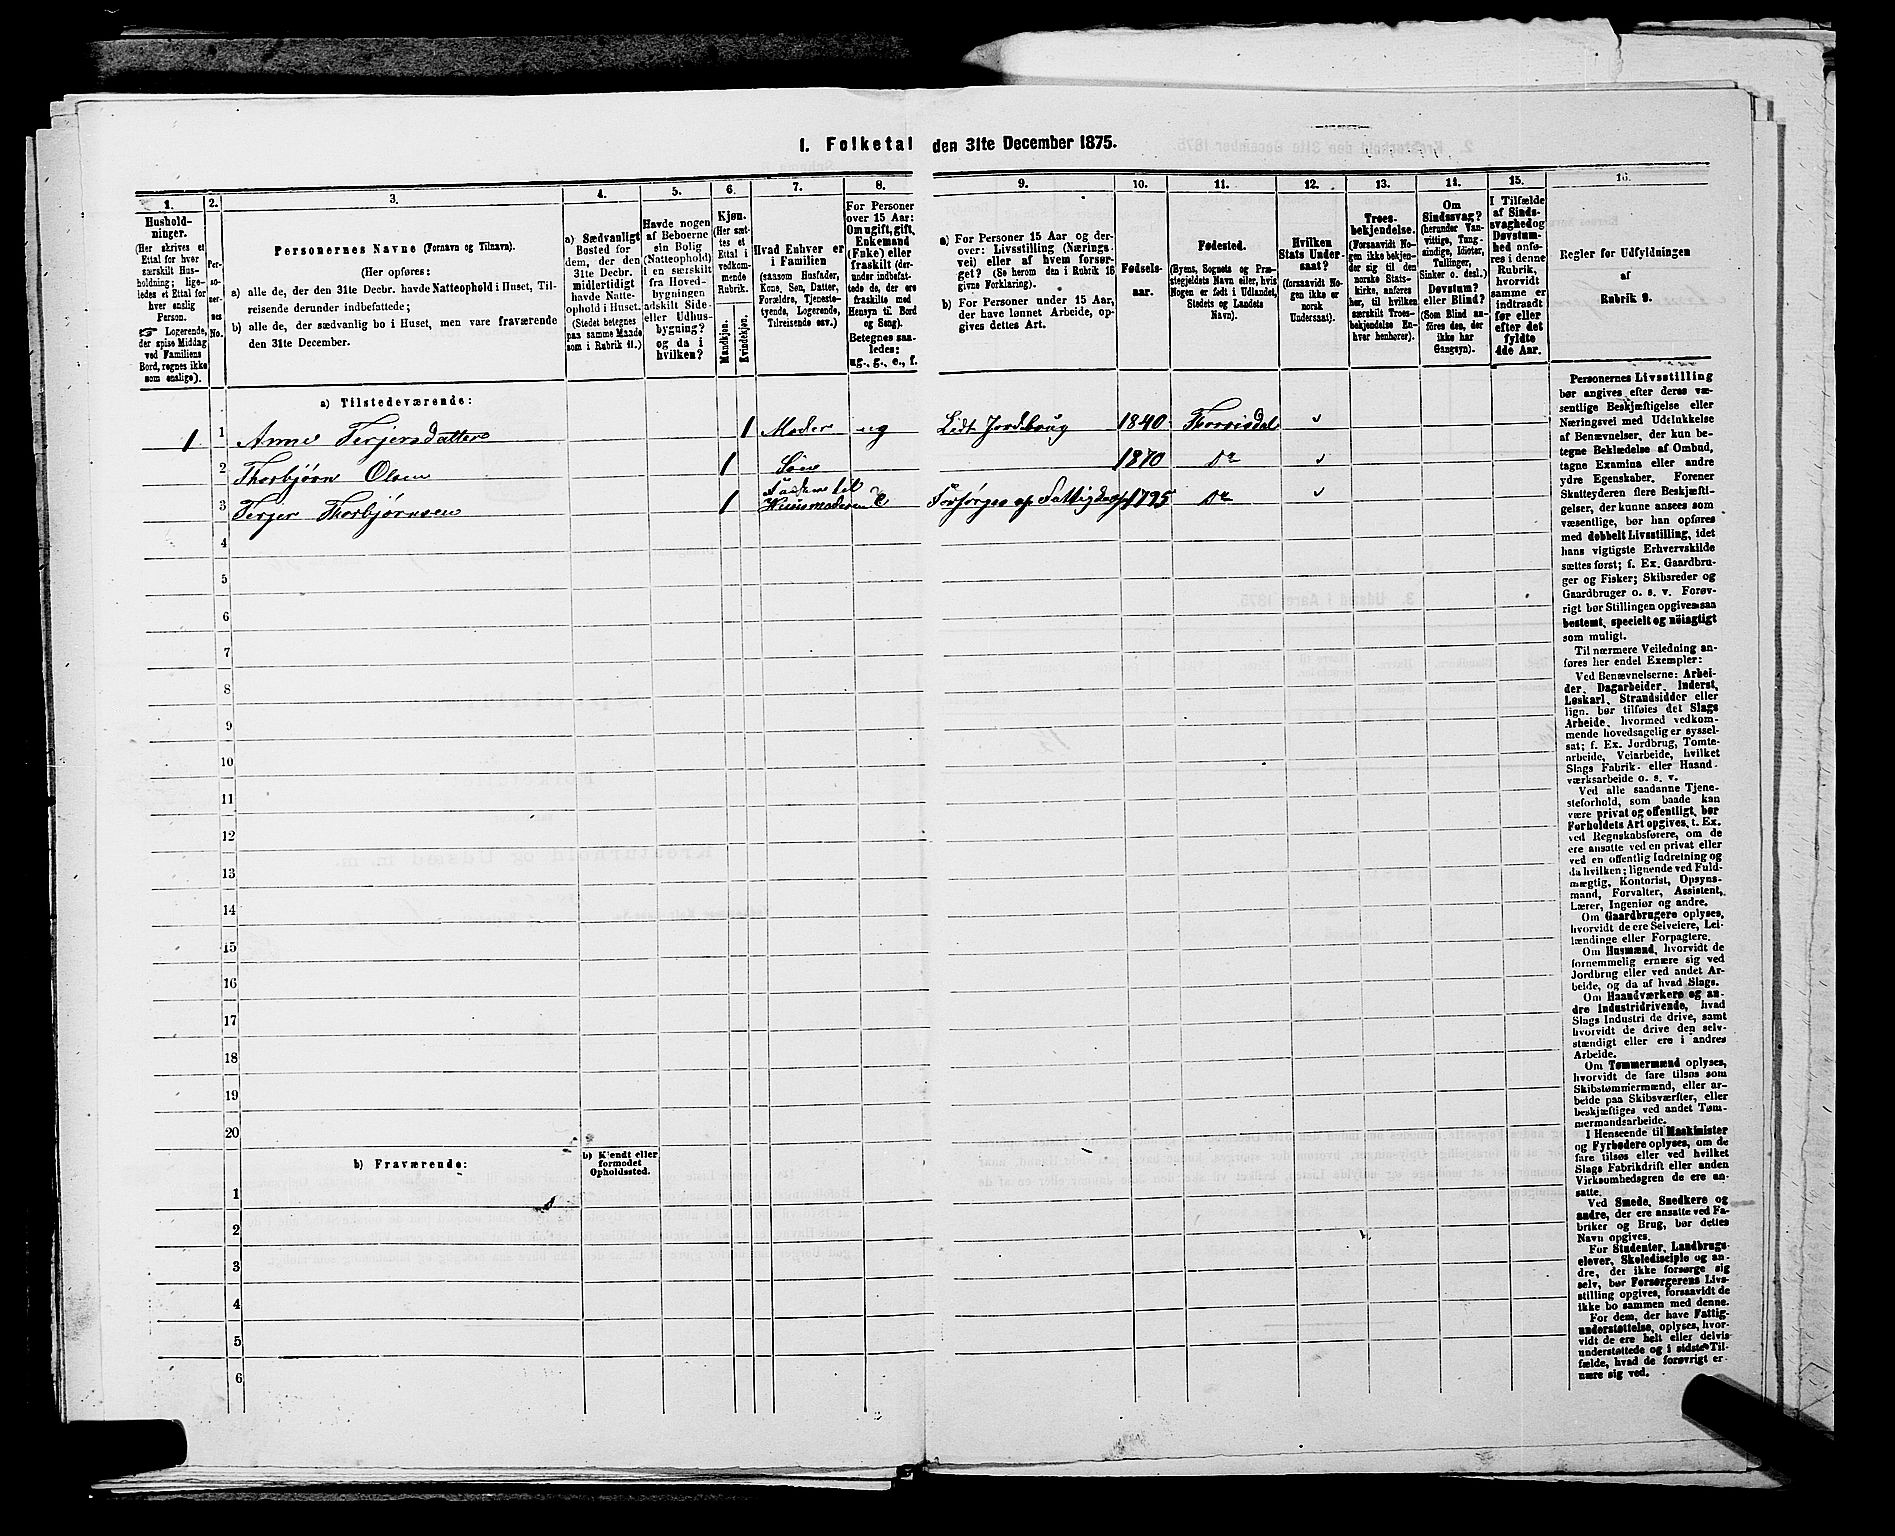 1. Folketal den 31te December 1875.
1.
Hushold-
ninger.
(Her skrives et
Ettal for hver
særskilt Hus-
holdning; lige-
ledes et Ettal for
hver enslig
Person.
Logerende,
der spise Middag
ved Familiens
Bord, regnes ikke
som enslige).
2.
Per-
so-
ner-
nes
No.
3.
Personernes Navne (Fornavn og Tilnavn).
(Her opføres:
a) alle de, der den 31te Decbr. havde Natteophold i Huset, Til-
reisende derunder indbefattede;
b) alle de, der sædvanlig bo i Huset, men vare fraværende
den 31te December.
4.
a) Sædvanligt
Bosted for
dem, der den
31te Decbr.
midlertidigt
havde Natte-
ophold i Huset.
(Stedet betegnes
paa samme Maade
som i Rubrik 11.)
5.
Havde nogen
af Beboerne
sin Bolig
(Natteophold)
i en særskilt
fra Hoved-
bygningen
adskilt Side-
eller Udhus-
bygning?
og da i
hvilken?
6.
Kjøn.
(Her sæt-
tes et
Ettal i
vedkom-
mende
Rubrik.
Mandkjøn.
Kvindekjøn.
7.
Hvad Enhver er
i Familien
(saasom Husfader,
Kone, Søn, Datter,
Forældre, Tjeneste-
tyende, Logerende,
Tilreisende osv.)
8.
For Personer
over 15 Aar:
Om ugift, gift,
Enkemand
(Enke) eller
fraskilt (der-
under indbefat-
tede de, der ere
fraskilte med
Hensyn til Bord
og Seng).
Betegnes saa-
ledes:
ug., g., e., f.
9.
a) For Personer 15 Aar og der-
over: Livsstilling (Nærings-
vei) eller af hvem forsør-
get? (Se herom den i Rubrik 16
givne Forklaring).
b) For Personer under 15 Aar,
der have lønnet Arbeide, op-
gives dettes Art.
10.
Fødsels-
aar.
11.
Fødested.
(Byens, Sognets og Præ-
stegjeldets Navn eller, hvis
Nogen er født i Udlandet,
Stedets og Landets
Navn).
12.
Hvilken
Stats Under-
saat?
(forsaavidt No-
gen ikke er
norsk
Undersaat).
13.
Troes-
bekjendelse.
(Forsaavidt No-
gen ikke bekjen-
der sig til den
norske Stats-
kirke, anføres
her, til hvilken
særskilt Troes-
bekjendelse En-
hver henhører).
14.
Om
Sindssvag?
(herunder Van-
vittige, Tung-
sindige, Idioter,
Tullinger,
Sinker o. desl.)
Døvstum?
eller Blind?
(Som Blind an-
føres des, der
ikke har
Gangsyn).
15.
I Tilfælde
af Sinds-
svaghed og
Døvstum-
hed onfø-
res i denne
Rubrik,
hvorvidt
samme er
indtraadt
før eller
efter det
fyldte
4de Aar.
16.
Regler for Udfyldningen
af
Rubrik 9.
a) Tilstedeværende:
1 1 Anne Terjersdatter 1 Moder ug Lidt Jordbrug 1840 Thorrisdal
2 Thorbjørn Olsen 1 Søn 1870 Do
3 Terjer Thorbjørnsen 1 Fader til Husmoderen E Forsørges af Fattigkas. 1795 Do
4
5
6
7
8
9
10
11
12
13
14
15
16
17
18
19
20
b) Fraværende:
b) Kjendt eller
formodet
Opholdssted.
1
2
3
4
5
6
Personernes Livsstilling
bør angives efter deres væ-
sentlige Beskjæftigelse eller
Næringsvei med Udelukkelse
af Benævnelser, der kun be-
tegne Beklædelse af Ombud,
tagne Examina eller andre
ydre Egenskaber. Forener
Skatteyderen flere Beskjæfti-
gelser, der kunne ansees som
væsentlige, bør han opføres
med dobbelt Livsstilling, idet
hans vigtigste Erhvervskilde
sættes først; f. Ex. Gaardbru-
ger og Fisker; Skibsreder og
Gaardbruger o. s. v. Forøv-
rigt bør Stillingen opgives saa
bestemt, specielt og nöiagtigt
som muligt.
Til nærmere Veiledning an-
føres her endel Exempler:
Ved Benævnelserne: Arbei-
der, Dagarbeider, Inderst,
Løskarl, Strandsidder eller
lign. bør tilføies det Slags
Arbeide, hvormed vedkom-
mende hovedsagelig er syssel-
sat; f. Ex. Jordbrug, Tomte-
arbeide, Veiarbeide, hvilket
Slags Fabrik- eller Haand-
værksarbeide o. s. v.
Ved alle saadanne Tjene-
steforhold, som baade kan
være privat og offentligt, bør
Forholdets Art opgives, t. Ex.
ved Regnskabsførere, om de
ere ansatte ved en privat eller
ved en offentlig Indretning og
da hvilken; lignende ved Fuld-
mægtig, Kontorist, Opsyns-
mand, Forvalter, Assistent,
Lærer, Ingeniør og andre.
Om Gaardbrugere oplyses,
hvorvidt de ere Selveiere, Lei-
lændinge eller Forpagtere.
Om Husmænd, hvorvidt de
fornemmelig ernære sig ved
Jordbrug eller ved andet Ar-
beide, og da af hvad Slags.
Om Haandværkere og an-
dre Industridrivende, hvad
Slags Industri de drive, samt
hvorvidt de drive den selv-
stændigt eller ere i andres
Arbeide.
Om Tømmermænd oplyses,
hvorvidt de fare tilsøs som
Skibstømmermænd, eller ar-
beide paa Skibsværfter, eller
beskjæftiges ved andet Tøm-
mermandsarbeide.
I Henseende til Maskinister
og Fyrbødere oplyses, om de
fare tilsøs eller ved hvilket
Slags Fabrikdrift eller anden
Virksomhedsgren de ere an-
satte.
Ved Smede, Snedkere og
andre, der ere ansatte ved Fa-
briker og Brug, bør dettes
Navn opgives.
For Studenter, Landbrugs-
elever, Skoledisciple og an-
dre, der ikke forsørge sig
selv, bør Forsørgerens Livs-
stilling opgives, forsaavidt de
ikke bo sammen med denne.
For dem, der have Fattig-
understøttelse, oplyses, hvor-
vidt de ere helt eller delvis
understøttede og i sidste Til-
fælde, hvad de forøvrigt er-
nære sig ved.